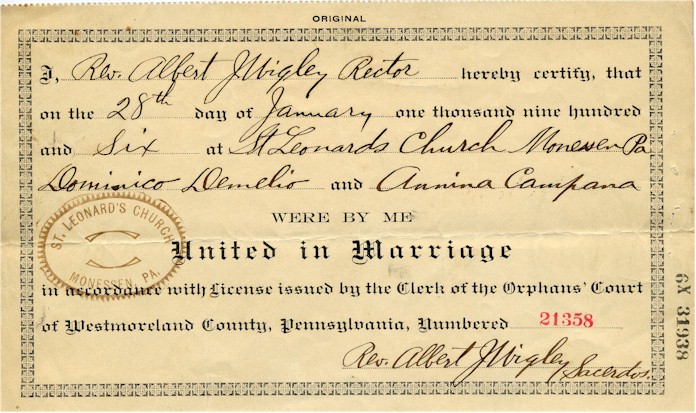 ORIGINAL
I, Rev. Albert J Wigley Rector hereby certify, that
on the 28th day of January one thousand nine hundred
and Six at St Leonards Church Monessen Pa
Dominico Demelio and Annina Campana
WERE BY ME
United in Marriage
in accordance with License issued by the Clerk of the Orphans' Court
of Westmoreland County, Pennsylvania, Numbered 21358
Rev. Albert J Wigley Sacerdos.
ST. LEONARD'S CHURCH
MONESSEN, PA.
6X 31938